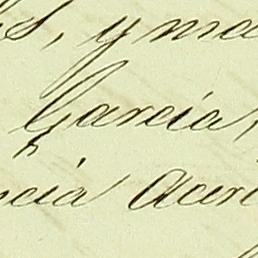 , y ma
Garcia,
ncia Acer